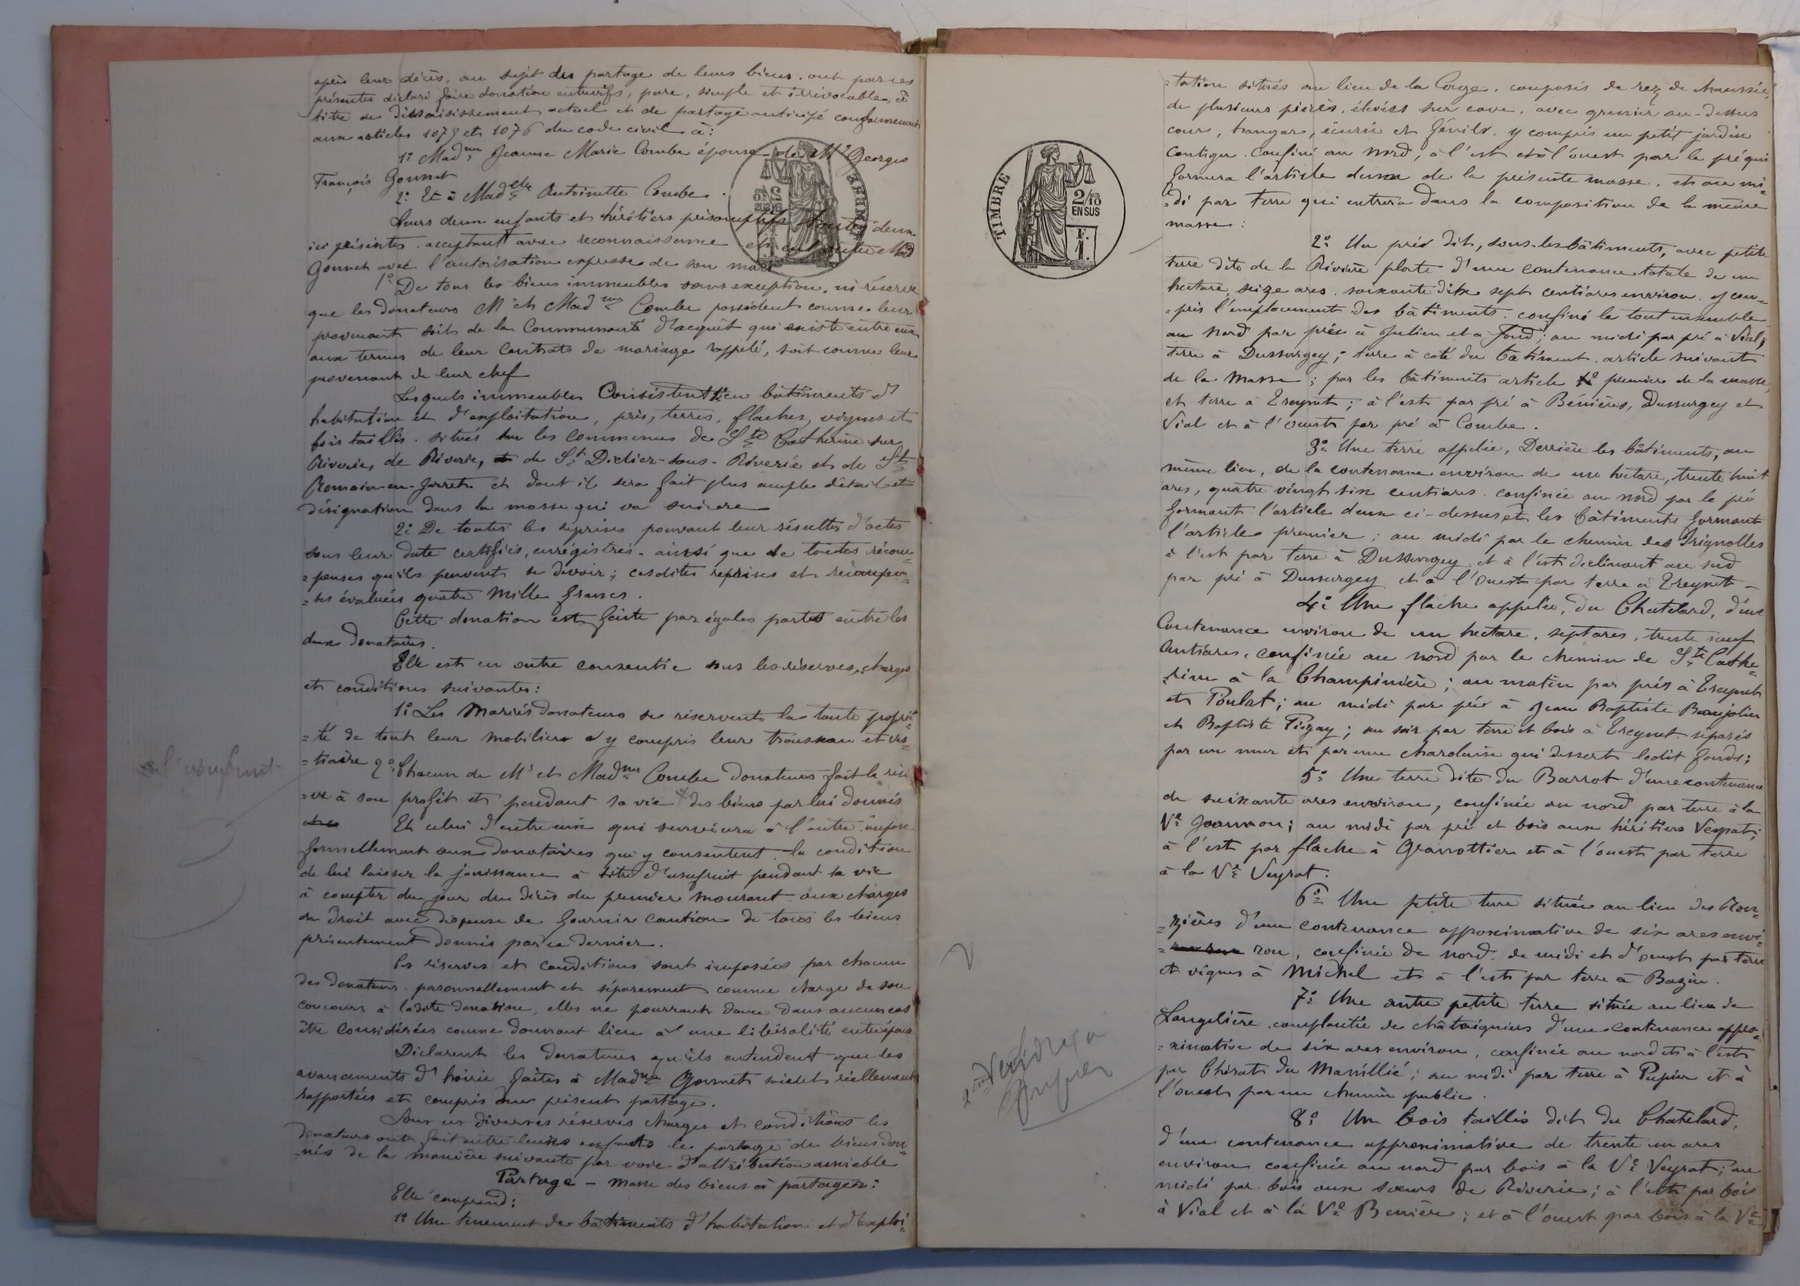 après leur décès, au sujet des partage de leurs biens, ont par ces
présentes déclaré faire donation entrevifs, pure, simple et irrévocable, à
titre de dessaisissement actuel et de partage anticipé conformément
aux articles 1075 et 1076 du code civil à:
1º Madme Jeanne Marie Combe épouse de Mr Georges
François Gonnet
2º Et à Madelle Antoinette Combe.
Leurs deux enfants et héritiers présomptifs toutes deux
ici présentes, acceptant avec reconnaissance et en outre Md
Gonnet avec l'autorisation expresse de son mari
1º De tous les biens immeubles sans exception, ni réserve
que les donateurs M et Madme Combe possèdent comme leur
provenant soit de la Communauté d'acquêt qui existe entre eux
aux termes de leur contrats de mariage rappelé, soit comme leur
provenant de leur chef
Lesquels immeubles Consistent en bâtiments d'
habitation et d'exploitation, prés, terres, flaches, vignes et
bois taillis. situés sur les communes de Ste Catherine sur
Riverie, de Riverie, de St Didier-sous-Riverie et de St
Romain-en-Jarret et dont il sera fait plus ample détail et
désignation dans la masse qui va suivre
2º De toutes les reprises pouvant leur résulter d'actes
sous leur date certifiés, enrégistrés. ainsi que de toutes récom-
-penses qu'ils peuvent se devoir; cesdites reprises et récompen-
-ses évaluées quatre Mille francs.
Cette donation est faite par égales partes entre les
deux donataires.
Elle est en outre consentie sous les réserves, charges
et conditions suivantes:
1º Les Mariés donateurs se réservent la toute proprié-
-té de tout leur mobilier y compris leur trousseau et ves-
-tiaire 2º Chacun de Mr et Madme Combe donateurs fait la réser-
l'usufruit
-ve à son profit et pendant sa vie × des biens par lui donnés
Et celui d'entre eux qui survivra à l'autre impose
formellement aux donataires qui y consentent la condition
de lui laisser la jouissance à titre d'usufruit pendant sa vie
à compter du jour du décès du premier mourant aux charges
de droit avec dispense de fournir caution de tous les biens
présentement donnés par ce dernier.
Les réserves et conditions sont imposées par chacun
des donateurs personnellement et séparément comme charge de son
concours à ladite donation, elles ne pourront donc dans aucun cas
être considérées comme donnant lieu à une libéralité entre époux
Déclarent les donateurs qu'ils entendent que les
avancements d'hoirie faites à Madme Gonnet soient réellement
rapportées et compris au présent partage.
Sous ces diverses réserves charges et conditions les
donateurs ont fait entre leurs enfants le partage de biens don-
-nés de la manière suivante par voie d'attribution amiable
Partage – Masse des biens à partager:
Elle comprend:
1º Une tenement de bâtiments d'habitation et d'exploi-
TIMBRE
2/10
EN SUS
1 F.
2me Verbidraga
-tation situés au lieu de la Conge. composés de rez de chaussée,
de plusieurs pièces, élevées sur cave, avec grenier au-dessus
cour, hangar, écurie et fénils. y compris un petit jardin
contigu. Confiné au Nord, à l'est et à l'ouest par le pré qui
formera l'article deux de la présente masse, et au mi-
-di par terre qui entrera dans la composition de la même
masse:
2º Un pré dit, sous les bâtiments, avec petite
terre dite de la Rivière plate d'une contenance totale de un
hectare, seize ares, soixante dix sept centiares environ, y com-
-pris l'emplacement des bâtiments. confiné le tout ensemble
au Nord par prés à Julien et à Fond; au midi par pré à Vial,
terre à Dussurgey; terre à coté du bâtiment article suivant
de la Masse; par les bâtiments article premier de la masse,
et terre à Treynet; à l'est par pré à Bénières, Dussurgey et
Vial et à l'Ouest par pré à Combe.
3º Une terre appelée, Derrière les bâtiments, au
même lieu, de la contenance environ de un hectare, trente huit
ares, quatre vingt six centiares. confinée au nord par le pré
formant l'article deux ci-dessus et les bâtiments formant
l'article premier; au midi par le chemin des Grignolles
à l'est par terre à Dussurgey et à l'est déclinant au sud
par pré à Dussurgey et à l'Ouest par terre à Treynet –
4º Une flache appelée, du Chatelard, d'une
Contenance environ de un hectare, sept ares, trente neuf
Centiares, confinée au nord par le chemin de Ste Cathe-
-rine à la Champinière; au matin par prés à Treynet
et Poulat; au midi par pré à Jean Baptiste Beaujolin
et Baptiste Pigay; au soir par terre et bois à Treynet séparés
par un mur et par une charoluise qui dessert ledit fonds;
5º Une terre dite du Barrot d'une contenance
de soixante ares environ, confinée au nord par terre à la
Ve Joannon; au midi par pré et bois aux héritiers Veyrat;
à l'est par flache à Granottier et à l'ouest par terre
à la Ve Veyrat.
6º Une petite terre située au lieu des
-zières d'une contenance approximative de six ares envi-
-ron, confinée de nord, de midi et d'ouest par terre
et vignes à Michel et à l'est par terre à Bazin.
7º Une autre petite terre située au lieu de
Langelière complantée de châtaigniers d'une contenance appro-
-ximative de six ares environ, confinée au nord et à l'est
par Chirat du Manillié; au midi par terre à Pupier et à
l'ouest par un chemin public.
8º Un bois taillis dit du Chatelard,
d'une contenance approximative de trente un ares
environ confinée au nord par bois à la Ve Veyrat; au
midi par bois aux sœurs de Riverie; à l'est par bois
à Vial et à la Ve Benière; et à l'ouest par bois à la Ve